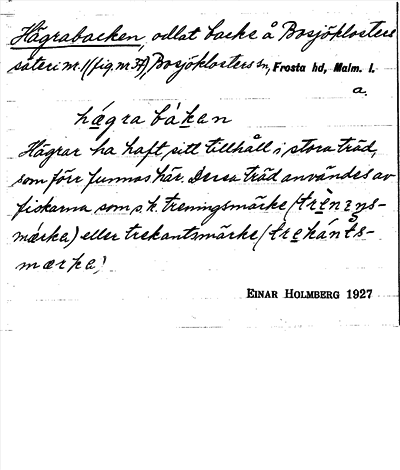 Hägrabacken, odlat backe å Bosjöklosters
säteri nr. 1 (fig. nr 37), Bosjöklosters sn, Frosta hd, Malm. l.
a.
hägra bákan
Hägrar ha haft sitt tillhåll i stora träd,
som förr funnos här. Dessa träd användes av
fiskarna som s.k. treningsmärke (trènıŋs-
mærka) eller trekantsmärke (trekánts-
mærka).
EINAR HOLMBERG 1927